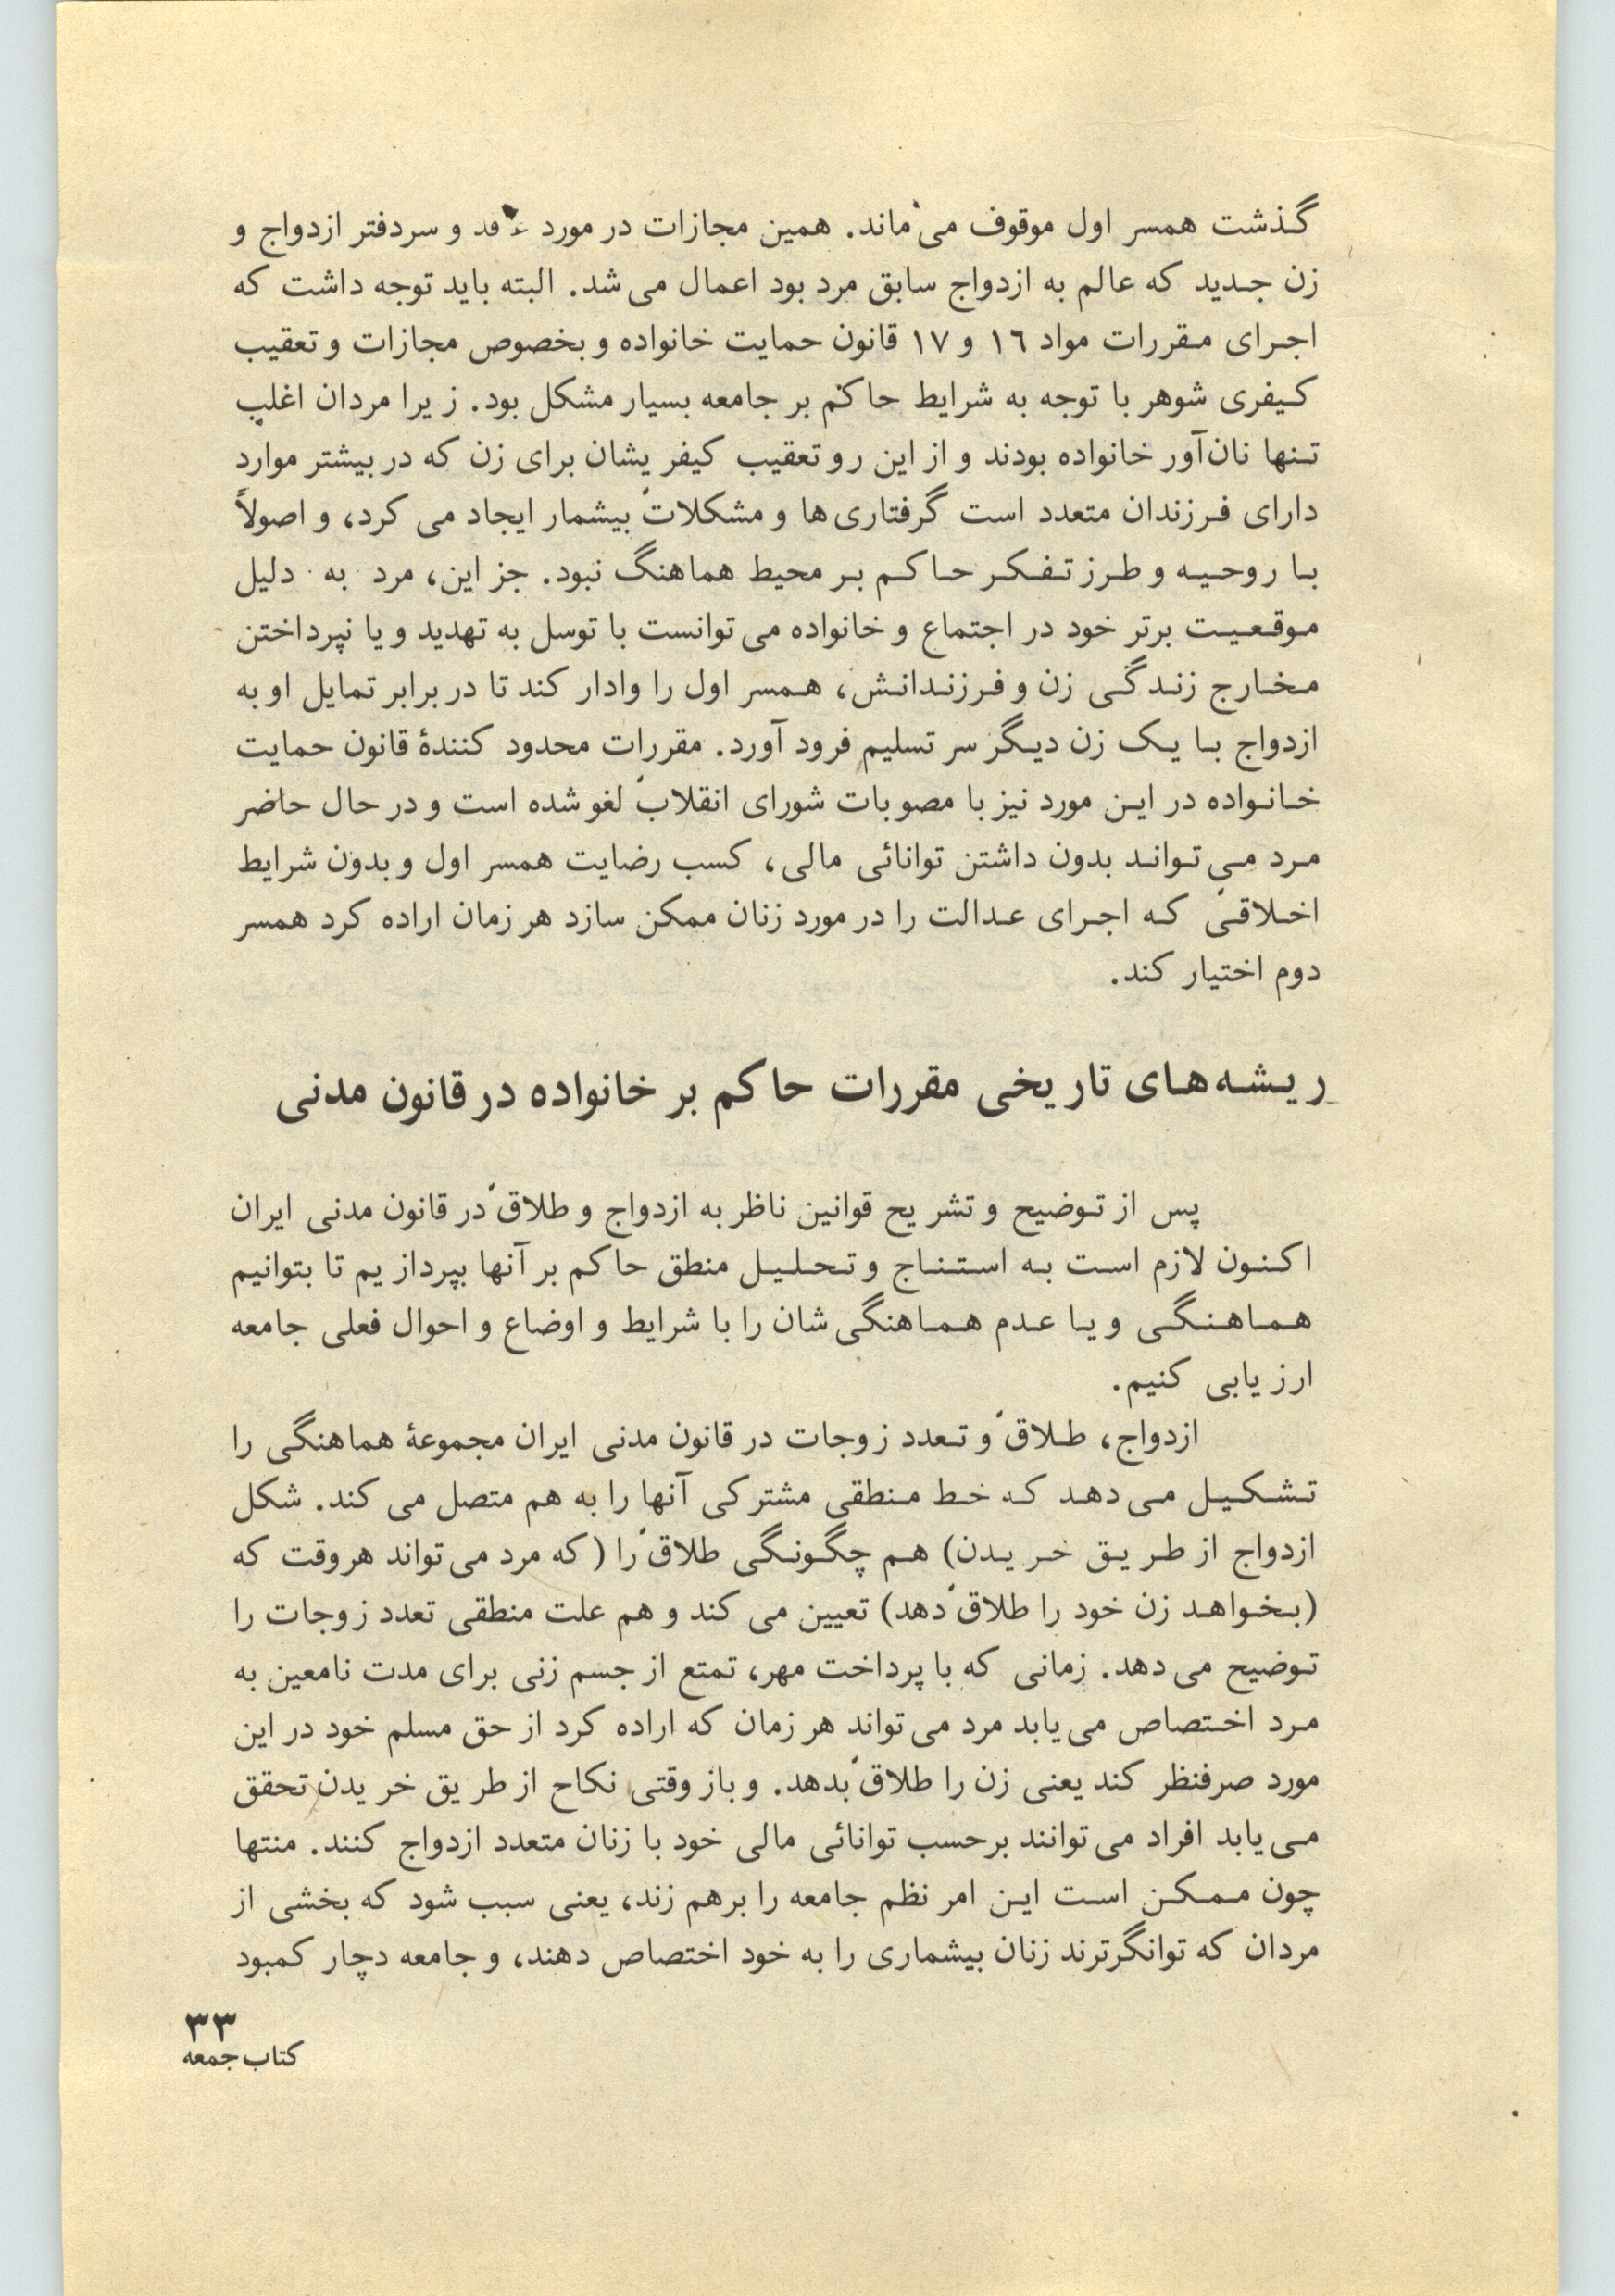 گذشت همسر اول موقوف می‌ماند. همین مجازات در مورد عاقد و سردفتر ازدواج و
زن جدید که عالم به ازدواج سابق مرد بود اعمال می‌شد. البته باید توجه داشت که
اجرای مقررات مواد ۱۶ و ۱۷ قانون حمایت خانواده و بخصوص مجازات و تعقیب
کیفری شوهر با توجه به شرایط حاکم بر جامعه بسیار مشکل بود. زیرا مردان اغلب
تنها نان‌آور خانواده بودند و از این رو تعقیب کیفریشان برای زن که در بیشتر موارد
دارای فرزندان متعدد است گرفتاری‌ها و مشکلات بیشمار ایجاد می‌کرد، و اصولاً
با روحیه و طرز تفکر حاکم بر محیط هماهنگ نبود. جز این، مرد به دلیل
موقعیت برتر خود در اجتماع و خانواده می‌توانست با توسل به تهدید و یا نپرداختن
مخارج زندگی زن و فرزندانش، همسر اول را وادار کند تا در برابر تمایل او به
ازدواج با یک زن دیگر سر تسلیم فرود آورد. مقررات محدود کنندهٔ قانون حمایت
خانواده در این مورد نیز با مصوبات شورای انقلاب لغو شده است و در حال حاضر
مرد می‌تواند بدون داشتن توانائی مالی، کسب رضایت همسر اول و بدون شرایط
اخلاقی که اجرای عدالت را در مورد زنان ممکن سازد هر زمان اراده کرد همسر
دوم اختیار کند.
ریشه‌های تاریخی مقررات حاکم بر خانواده در قانون مدنی
پس از توضیح و تشریح قوانین ناظر به ازدواج و طلاق در قانون مدنی ایران
اکنون لازم است به استنتاج و تحلیل منطق حاکم بر آنها بپردازیم تا بتوانیم
هماهنگی و یا عدم هماهنگی‌شان را با شرایط و اوضاع و احوال فعلی جامعه
ارزیابی کنیم.
ازدواج، طلاق و تعدد زوجات در قانون مدنی ایران مجموعهٔ هماهنگی را
تشکیل می‌دهد که خط منطقی مشترکی آنها را به هم متصل می‌کند. شکل
ازدواج از طریق خریدن) هم چگونگی طلاق را (که مرد می‌تواند هروقت که
(بخواهد زن خود را طلاق دهد) تعیین می‌کند و هم علت منطقی تعدد زوجات را
توضیح می‌دهد. زمانی که با پرداخت مهر، تمتع از جسم زنی برای مدت نامعین به
مرد اختصاص می‌یابد مرد می‌تواند هر زمان که اراده کرد از حق مسلم خود در این
مورد صرفنظر کند یعنی زن را طلاق بدهد. و باز وقتی نکاح از طریق خریدن تحقق
می‌یابد افراد می‌توانند برحسب توانائی مالی خود با زنان متعدد ازدواج کنند. منتها
چون ممکن است این امر نظم جامعه را برهم زند، یعنی سبب شود که بخشی از
مردان که توانگرترند زنان بیشماری را به خود اختصاص دهند، و جامعه دچار کمبود
۳۳
کتاب جمعه